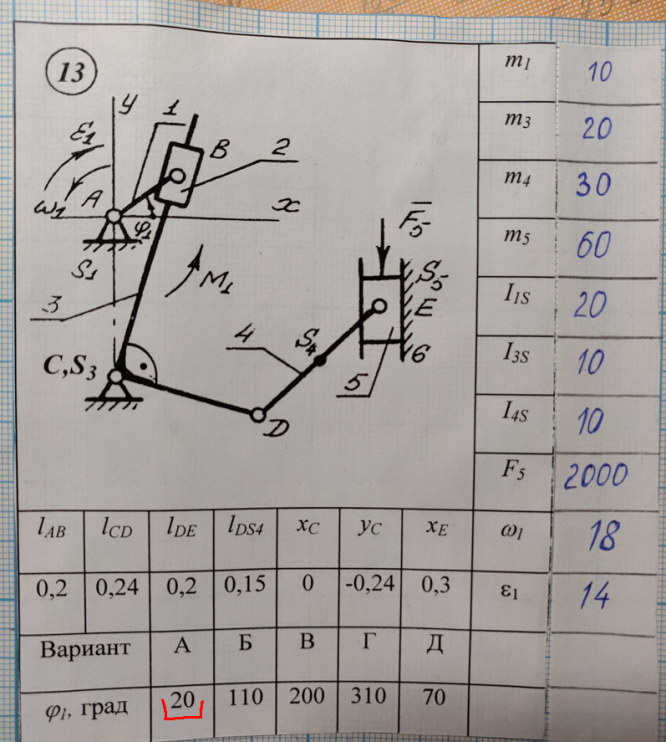 13
y
1
ε1
B
2
A
ω1
φ1
x
S1
F5
3
M1
S5
E
4
S4
6
5
C,S3
D
m1 10
m3 20
m4 30
m5 60
I1S 20
I3S 10
I4S 10
F5 2000
lAB lCD lDE lDS4 xC yC xE ω1 18
0,2 0,24 0,2 0,15 0 -0,24 0,3 ε1 14
Вариант А Б В Г Д
φ1, град 20 110 200 310 70